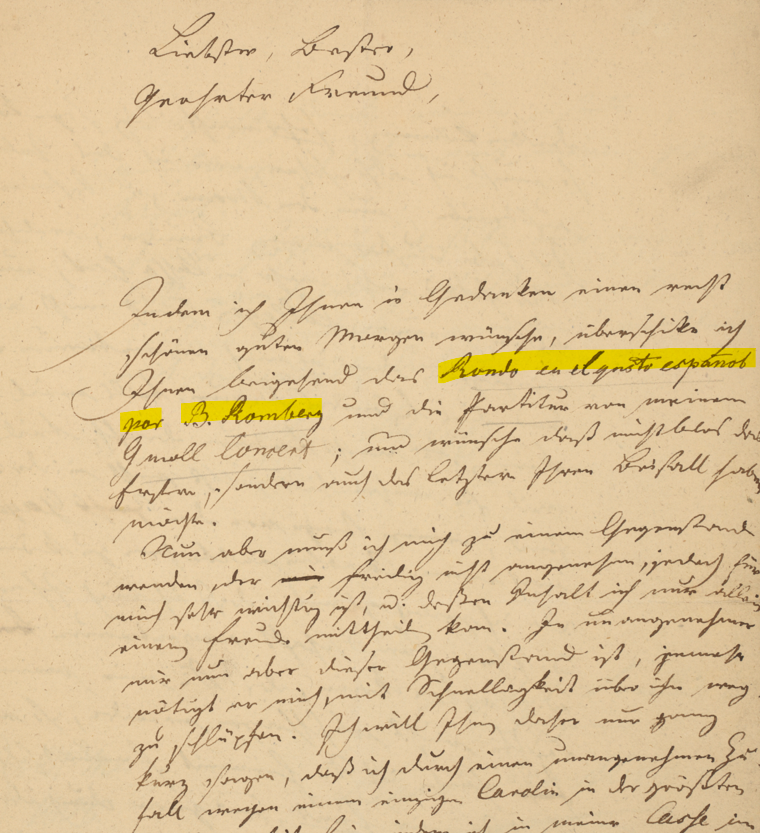 Liebster, Bester,
Geehrter Freund,
Indem ich Ihnen in Gedanken einen recht
schönen guten Morgen wünsche, überschike ich
Ihnen beigehend das Rondo en el gusto español
por B. Romberg und die Partitur von meinem
G moll Concert; und wünsche daß nicht blos das
Erstere, sondern auch das letztere Ihren Beifall haben
möchte.
Nun aber muß ich mich zu einem Gegenstande
wenden, der freilig nicht angenehm, jedoch für
mich sehr wichtig ist, u: deßen Inhalt ich nur allein
einem Freunde mittheilen kan. So unangenehmer
mir nun aber dieser Gegenstand ist, jemehr
nötigt er mich, mit Schnelligkeit über ihn weg
zu schlüpfen. Ich will Ihnen daher nur ganz
kurz sagen, daß ich durch einen unangenehmen Zu-
fall wegen einem einzigen Carolin in der größten
indem ich in meiner Casse im